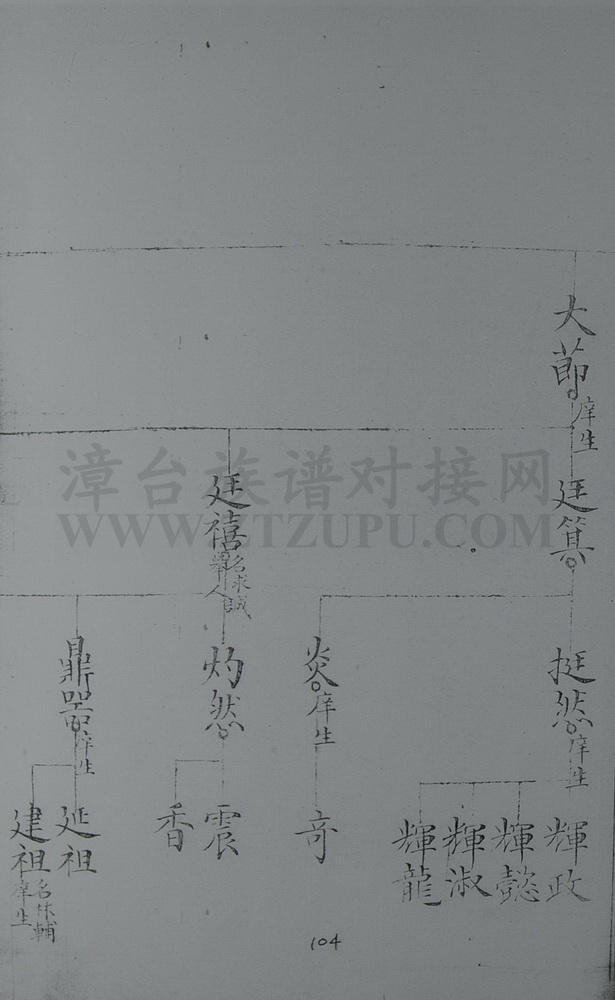 大節
庠生
廷箕
廷禧
名求誠
舉人
挺然
庠生
炎
庠生
灼然
鼎
庠生
輝政
輝懿
輝淑
輝龍
奇
震
香
延祖
建祖
輔
庠生
104
漳台族谱对接网
WWW.ZTZUPU.COM